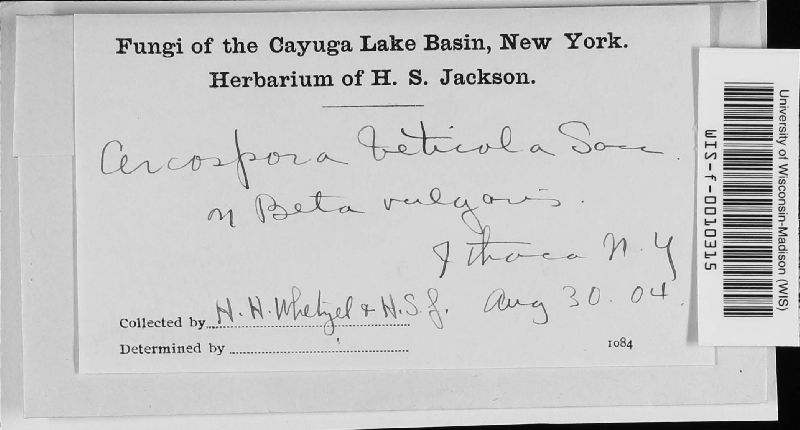 Fungi of the Cayuga Lake Basin, New York.
Herbarium of H. S. Jackson.
Cercospora beticola Sacc.
on Beta vulgaris.
Ithaca N. Y
Collected by H. H. Whetzel & H. S. J. Aug 30. 04.
Determined by
1084
University of Wisconsin-Madison (WIS)
WIS-f-0010315